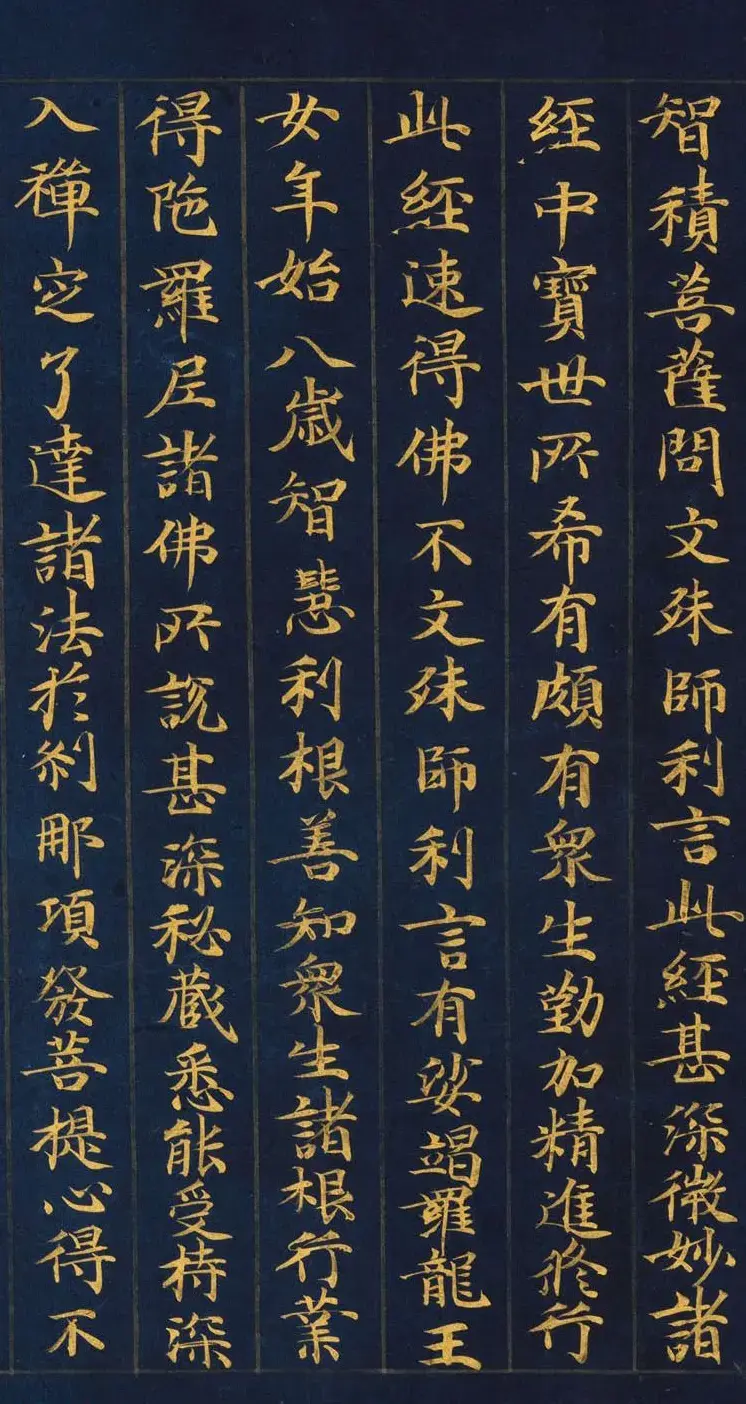 智積菩薩問文殊師利言此經甚深微妙諸
經中寶世所希有頗有衆生勤加精進修行
此經速得佛不文殊師利言有娑竭羅龍王
女年始八歲智慧利根善知衆生諸根行業
得陁羅尼諸佛所說甚深秘藏悉能受持深
入禪定了達諸法於刹那項發菩提心得不